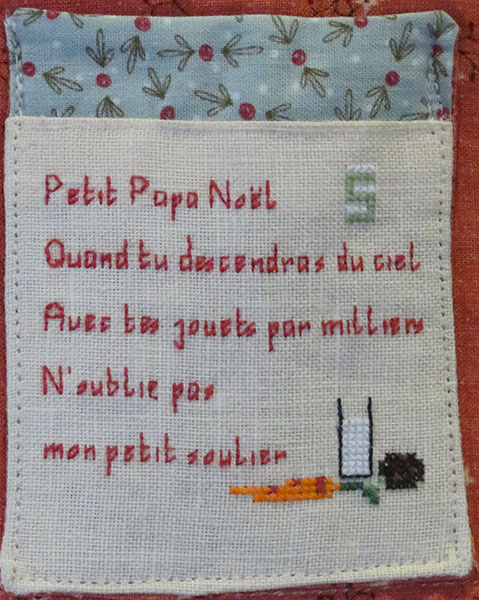 5
Petit Papa Noël
Quand tu descendras du ciel
Avec tes jouets par milliers
N'oublie pas
mon petit soulier